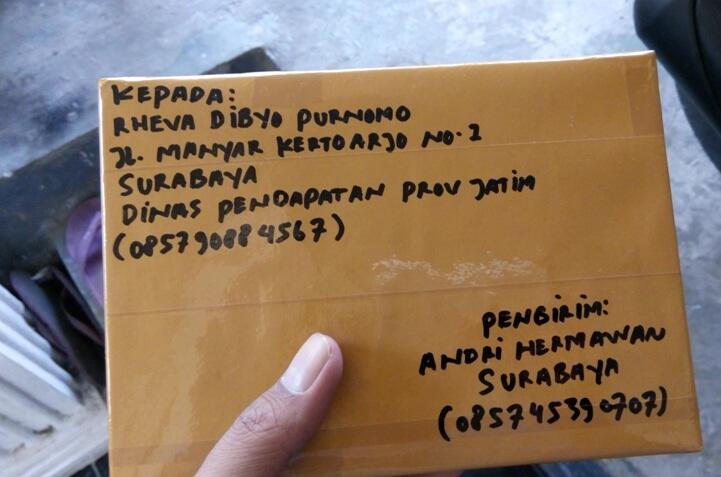 KEPADA:
RHEVA DIBYO PURNOMO
JL. MANYAR KERTOARJO NO. 1
SURABAYA
DINAS PENDAPATAN PROV JATIM
(085790884567)
PENGIRIM:
ANDRI HERMAWAN
SURABAYA
(085745390707)